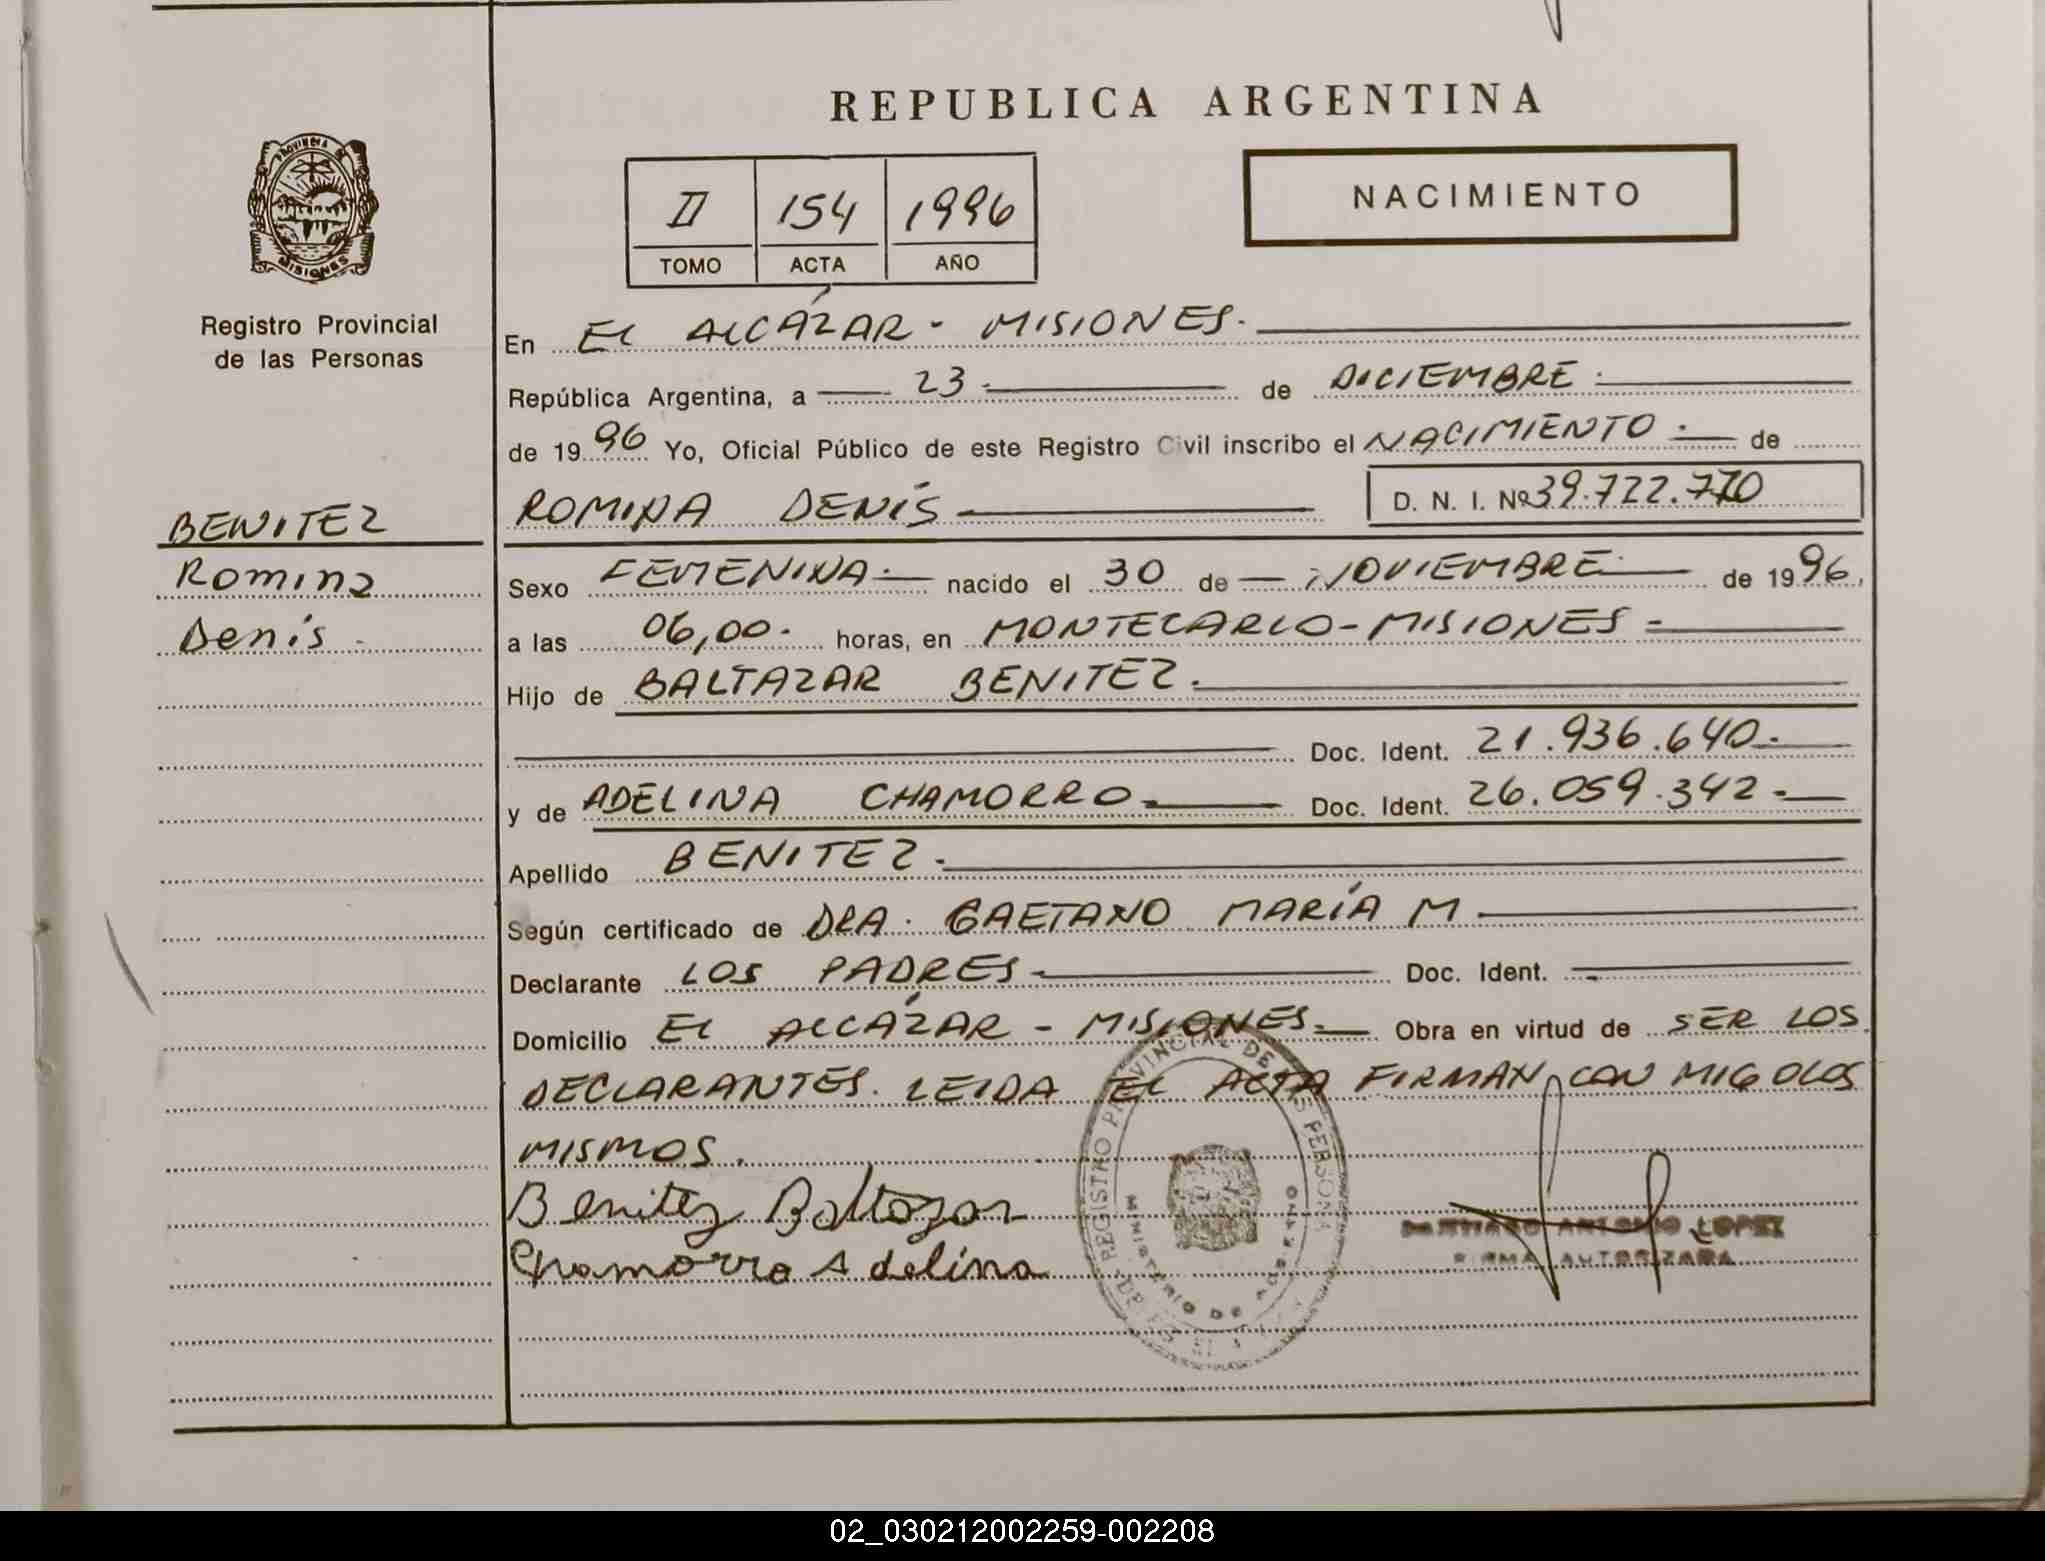 REPUBLICA ARGENTINA
PROVINCIA DE
MISIONES
Registro Provincial
de las Personas
II 154 1996
TOMO ACTA AÑO
NACIMIENTO
En EL ALCÁZAR - MISIONES.
República Argentina, a 23 de DICIEMBRE.
de 1996 Yo, Oficial Público de este Registro Civil inscribo el NACIMIENTO. de
BENITEZ
Romina
Denís.
ROMINA DENÍS D. N. I. Nº 39.722.770
Sexo FEMENINA. nacido el 30 de NOVIEMBRE de 1996,
a las 06,00. horas, en MONTECARLO - MISIONES
Hijo de BALTAZAR BENITEZ.
Doc. Ident. 21.936.640.
y de ADELINA CHAMORRO Doc. Ident. 26.059.342.
Apellido BENITEZ.
Según certificado de DRA. GAETANO MARÍA M
Declarante LOS PADRES Doc. Ident.
Domicilio EL ALCÁZAR - MISIONES. Obra en virtud de SER LOS
DECLARANTES. LEIDA EL ACTA FIRMAN CON MIGO LOS
MISMOS.
Benitez Baltazar
Chamorro Adelina
REGISTRO PROVINCIAL DE LAS PERSONAS
MINISTERIO DE GOBIERNO
SANTIAGO ANTONIO LOPEZ
FIRMA AUTORIZADA
02_030212002259-002208